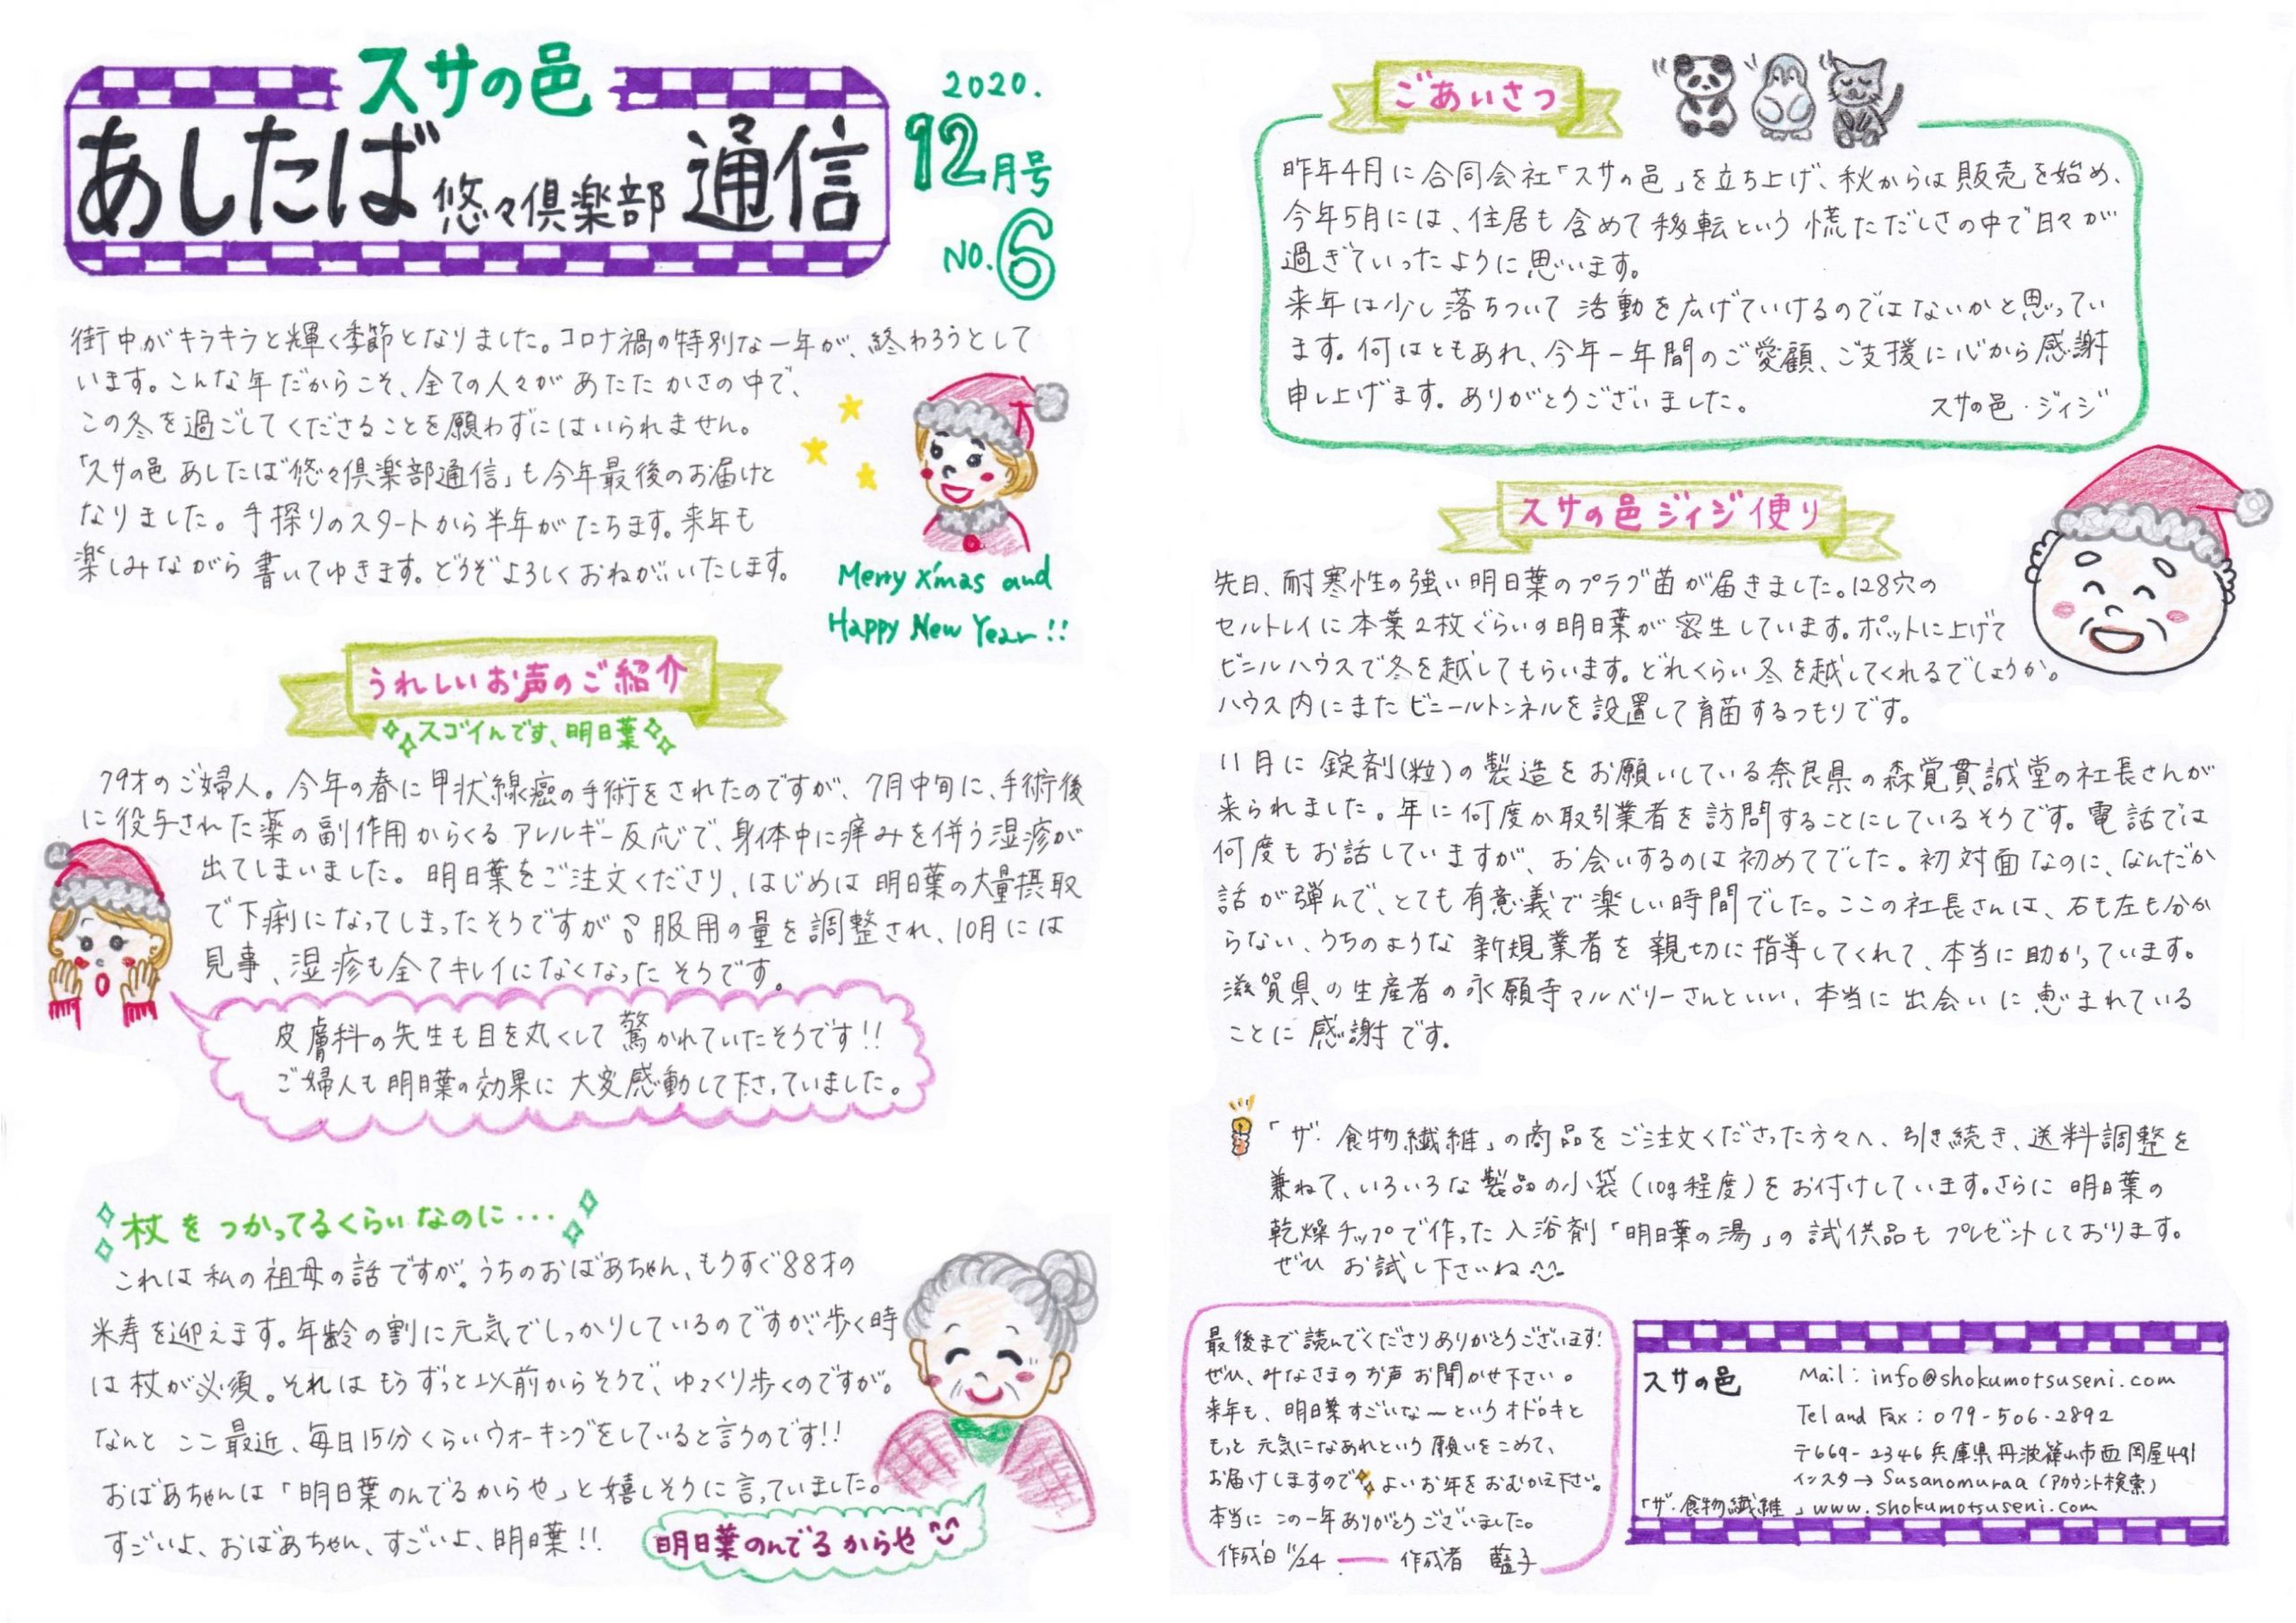 スサの邑
あしたば悠々倶楽部通信
2020.
12月号
NO.6
街中がキラキラと輝く季節となりました。コロナ禍の特別な一年が、終わろうとして
います。こんな年だからこそ、全ての人々があたたかさの中で、
この冬を過ごしてくださることを願わずにはいられません。
「スサの邑あしたば悠々倶楽部通信」も今年最後のお届けと
なりました。手探りのスタートから半年がたちます。来年も
楽しみながら書いてゆきます。どうぞよろしくおねがいいたします。
Merry X'mas and
Happy New Year!!
うれしいお声のご紹介
スゴイんです、明日葉
79才のご婦人。今年の春に甲状線癌の手術をされたのですが、7月中旬に、手術後
に役与された薬の副作用からくるアレルギー反応で、身体中に痒みを併う湿疹が
出てしまいました。明日葉をご注文くださり、はじめは明日葉の大量摂取
で下痢になってしまったそうですが 服用の量を調整され、10月には
見事、湿疹も全てキレイになくなったそうです。
皮膚科の先生も目を丸くして驚かれていたそうです!!
ご婦人も明日葉の効果に大変感動して下さっていました。
杖をつかってるくらいなのに…
これは私の祖母の話ですが。うちのおばあちゃん、もうすぐ88才の
米寿を迎えます。年齢の割に元気でしっかりしているのですが、歩く時
は杖が必須。それはもうずっと以前からそうで、ゆっくり歩くのですが。
なんとここ最近、毎日15分くらいウォーキングをしていると言うのです!!
おばあちゃんは「明日葉のんでるからや」と嬉しそうに言っていました。
すごいよ、おばあちゃん、すごいよ、明日葉!!
明日葉のんでるからや
ごあいさつ
昨年4月に合同会社「スサの邑」を立ち上げ、秋からは販売を始め、
今年5月には、住居も含めて移転という慌ただだしさの中で日々が
過ぎていったように思います。
来年は少し落ちついて活動を広げていけるのではないかと思ってい
ます。何はともあれ、今年一年間のご愛顧、ご支援に心から感謝
申し上げます。ありがとうございました。
スサの邑・ジィジ
スサの邑ジィジ便り
先日、耐寒性の強い明日葉のプラグ苗が届きました。128穴の
セルトレイに本葉2枚ぐらいの明日葉が密生しています。ポットに上げて
ビニルハウスで冬を越してもらいます。どれくらい冬を越してくれるでしょうか。
ハウス内にまたビニールトンネルを設置して育苗するつもりです。
11月に錠剤(粒)の製造をお願いしている奈良県の森覚貫誠堂の社長さんが
来られました。年に何度か取引業者を訪問することにしているそうです。電話では
何度もお話していますが、お会いするのは初めてでした。初対面なのに、なんだか
話が弾んで、とても有意義で楽しい時間でした。ここの社長さんは、右も左も分か
らない、うちのような新規業者を親切に指導してくれて、本当に助かっています。
滋賀県の生産者の永願寺マルベリーさんといい、本当に出会いに恵まれている
ことに感謝です。
「ザ・食物繊維」の商品をご注文くださった方々へ、引き続き、送料調整を
兼ねて、いろいろな製品の小袋(10g程度)をお付けしています。さらに明日葉の
乾燥チップで作った入浴剤「明日葉の湯」の試供品もプレゼントしております。
ぜひお試し下さいね
最後まで読んでくださりありがとうございます!
ぜひ、みなさまのお声お聞かせ下さい。
来年も、明日葉すごいな〜というオドロキと
もっと元気になあれという願いをこめて、
お届けしますので よいお年をおむかえ下さい。
本当にこの一年ありがとうございました。
作成日11/24 ― 作成者 藍子
スサの邑
Mail: info@shokumotsuseni.com
Tel and Fax: 079-506-2892
〒669-2346 兵庫県丹波篠山市西岡屋491
インスタ→ Susanomuraa (アカウント検索)
「ザ・食物繊維」www.shokumotsuseni.com